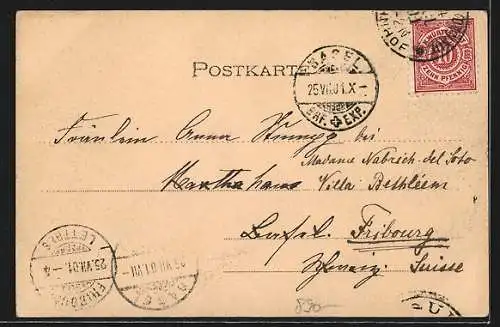 POSTKARTE
BASEL
25.VII.01.X-
BRF. EXP.
WÜRTTEMBERG
ZEHN PFENNIG
Fräulein Anna bei
Madame Nabrich-del Soto
Marthahaus Villa Bethléem
Basel. Fribourg
Schweiz. Suisse
LETTRES
25.VII.01.-4
FRIBOURG
25.VII.01.VII-
BASEL
890